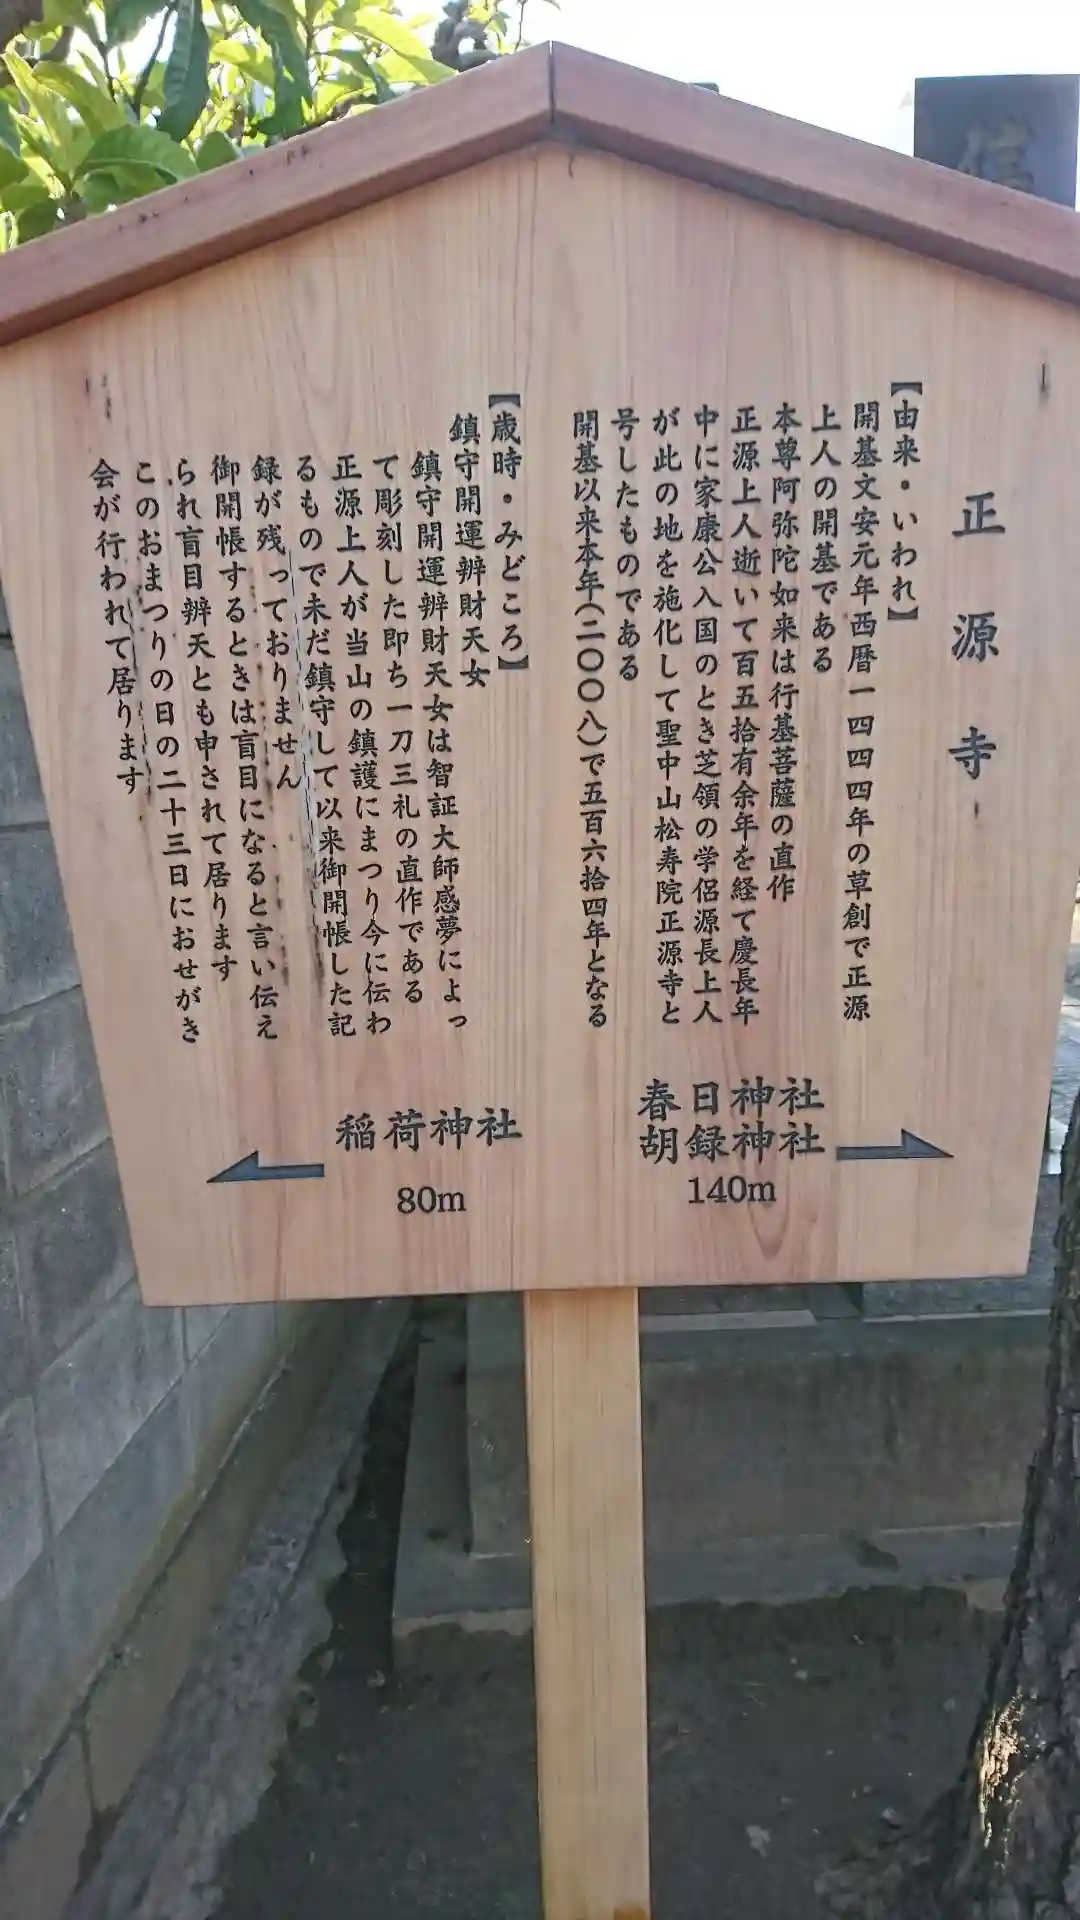 正源寺
【由来・いわれ】
開基文安元年西暦一四四四年の草創で正源
上人の開基である
本尊阿弥陀如来は行基菩薩の直作
正源上人逝いて百五拾有余年を経て慶長年
中に家康公入国のとき芝領の学侶源長上人
が此の地を施化して聖中山松寿院正源寺と
号したものである
開基以来本年(二〇〇八)で五百六拾四年となる
【歳時・みどころ】
鎮守開運辨財天女
鎮守開運辨財天女は智証大師感夢によっ
て彫刻した即ち一刀三礼の直作である
正源上人が当山の鎮護にまつり今に伝わ
るもので未だ鎮守して以来御開帳した記
録が残っておりません
御開帳するときは盲目になると言い伝え
られ盲目辨天とも申されて居ります
このおまつりの日の二十三日におせがき
会が行われて居ります
春日神社
胡録神社
140m
稲荷神社
80m